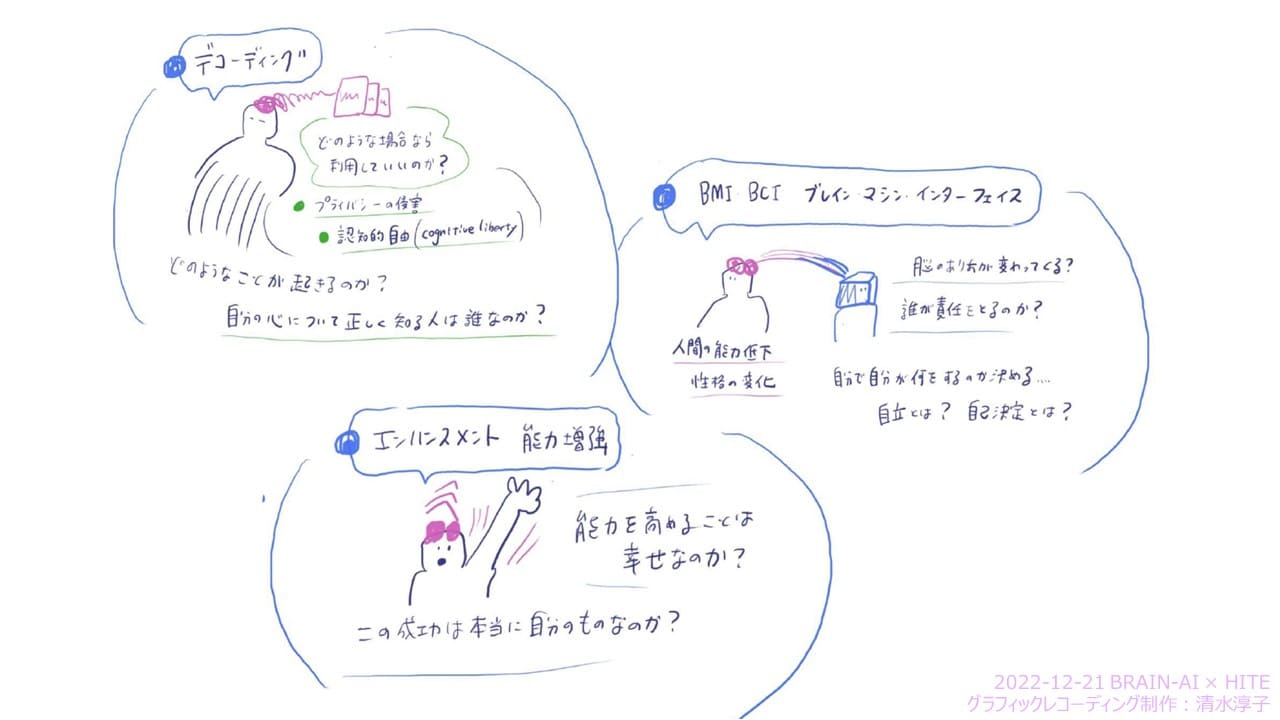 デコーディング
どのような場合なら
利用していいのか?
プライバシーの侵害
認知的自由(cognitive liberty)
どのようなことが起きるのか?
自分の心について正しく知る人は誰なのか?
BMI・BCI ブレイン・マシン・インターフェイス
脳のあり方が変わってくる?
誰が責任をとるのか?
人間の能力低下
性格の変化
自分で自分が何をするのか決める....
自立とは? 自己決定とは?
エンハンスメント 能力増強
能力を高めることは
幸せなのか?
この成功は本当に自分のものなのか?
2022-12-21 BRAIN-AI × HITE
グラフィックレコーディング制作:清水淳子